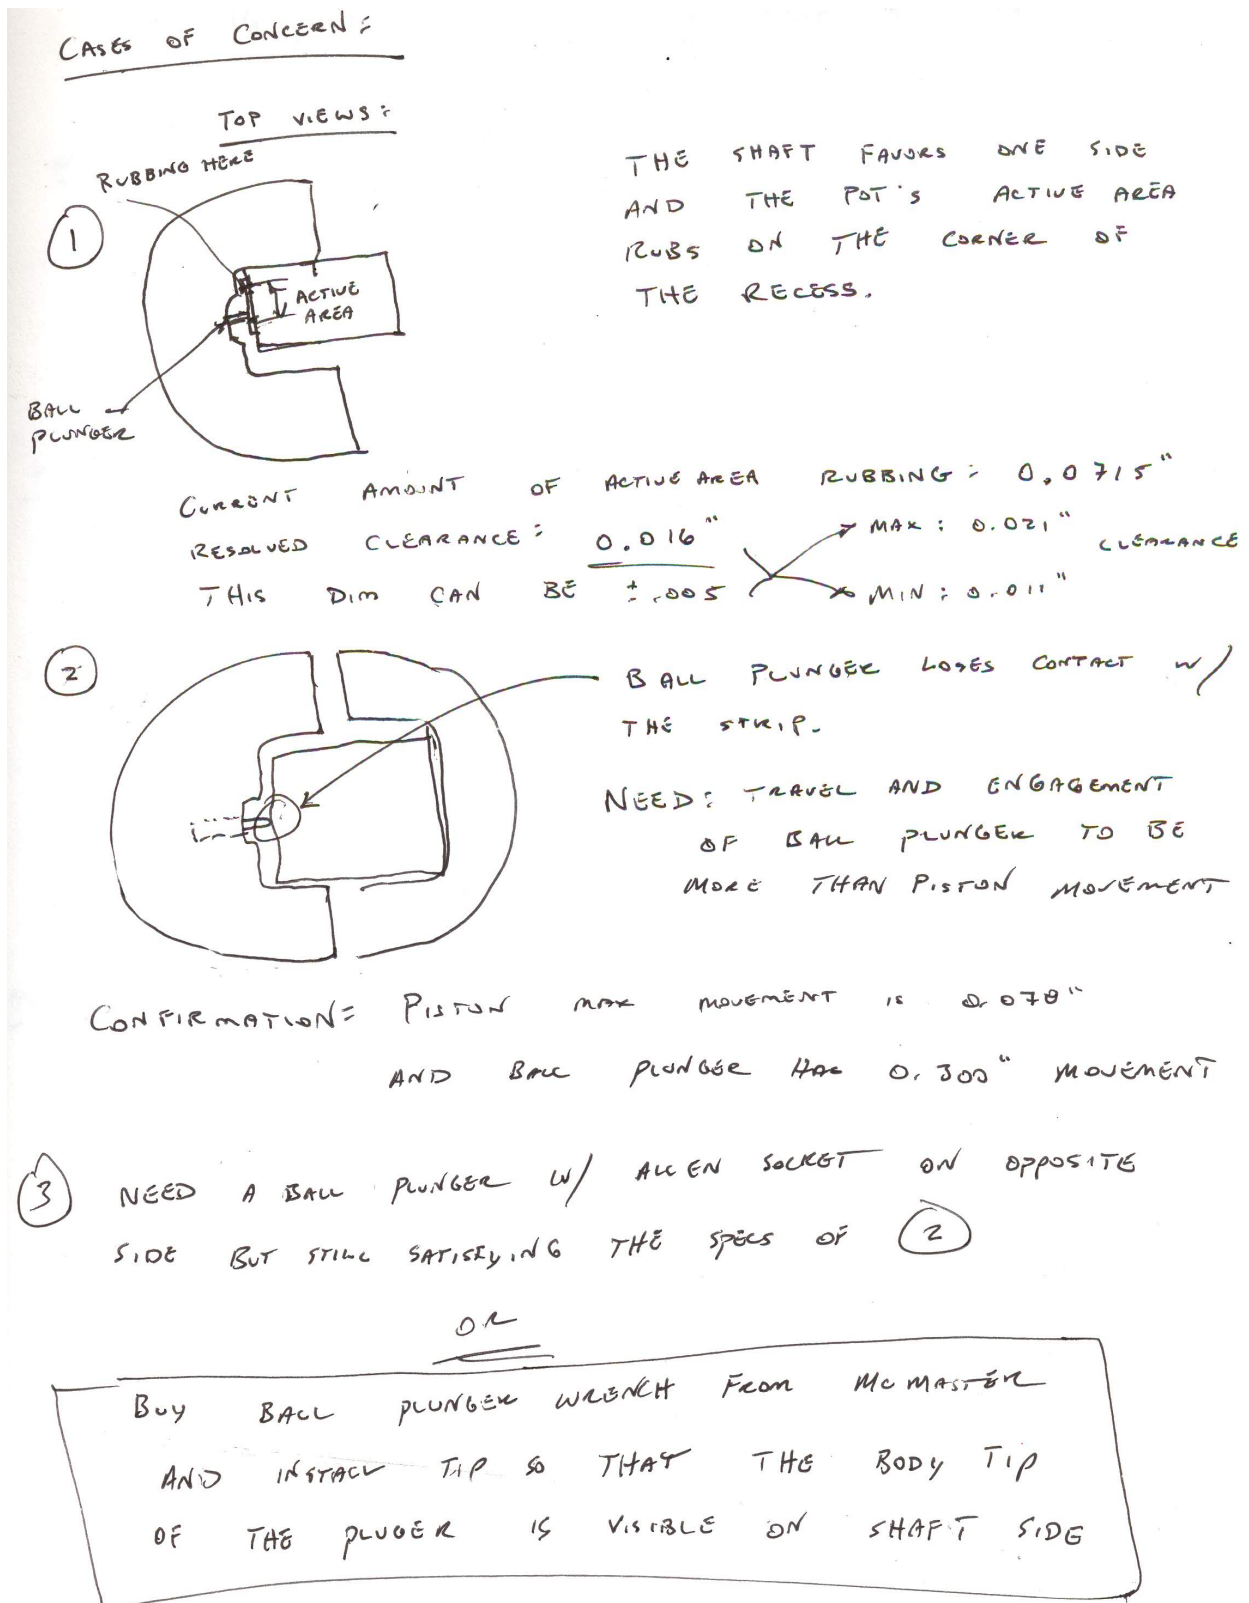 CASES OF CONCERN:
TOP VIEWS:
RUBBING HERE
1
ACTIVE
AREA
BALL
PLUNGER
THE SHAFT FAVORS ONE SIDE
AND THE POT'S ACTIVE AREA
RUBS ON THE CORNER OF
THE RECESS.
CURRENT AMOUNT OF ACTIVE AREA RUBBING: 0.0715"
RESOLVED CLEARANCE: 0.016" MAX: 0.021" CLEARANCE
THIS DIM CAN BE ±.005 MIN: 0.011"
2
BALL PLUNGER LOSES CONTACT W/
THE STRIP.
NEED: TRAVEL AND ENGAGEMENT
OF BALL PLUNGER TO BE
MORE THAN PISTON MOVEMENT
CONFIRMATION: PISTON MAX MOVEMENT IS 0.078"
AND BALL PLUNGER HAS 0.300" MOVEMENT
3 NEED A BALL PLUNGER W/ ALLEN SOCKET ON OPPOSITE
SIDE BUT STILL SATISFYING THE SPECS OF 2
OR
BUY BALL PLUNGER WRENCH FROM MCMASTER
AND INSTALL TIP SO THAT THE BODY TIP
OF THE PLUGER IS VISIBLE ON SHAFT SIDE